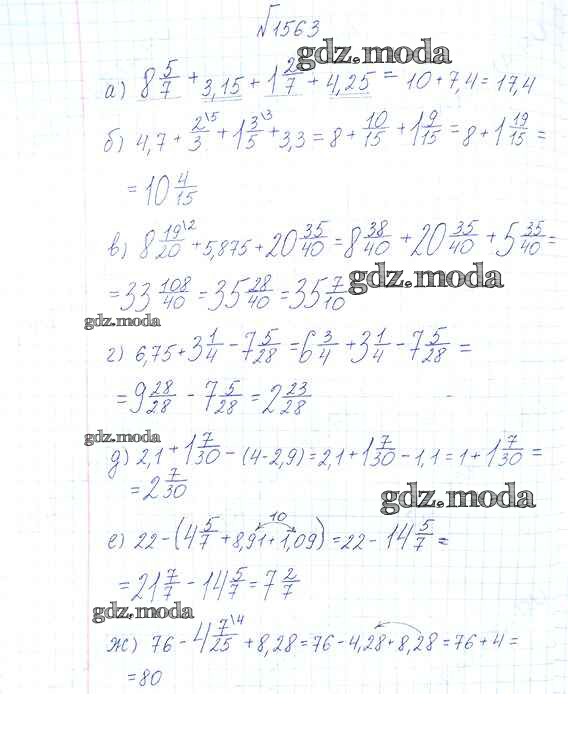 №1563
gdz.moda
а) 8 5/7 + 3,15 + 1 2/7 + 4,25 = 10 + 7,4 = 17,4
б) 4,7 + 2/3 \5 + 1 3/5 \3 + 3,3 = 8 + 10/15 + 1 9/15 = 8 + 1 19/15 =
= 10 4/15
в) 8 19/20 \2 + 5,875 + 20 35/40 = 8 38/40 + 20 35/40 + 5 35/40 =
gdz.moda
= 33 108/40 = 35 28/40 = 35 7/10
gdz.moda
г) 6,75 + 3 1/4 - 7 5/28 = 6 3/4 + 3 1/4 - 7 5/28 =
= 9 28/28 - 7 5/28 = 2 23/28
gdz.moda
д) 2,1 + 1 7/30 - (4 - 2,9) = 2,1 + 1 7/30 - 1,1 = 1 + 1 7/30 =
= 2 7/30
gdz.moda
10
е) 22 - (4 5/7 + 8,91 + 1,09) = 22 - 14 5/7 =
= 21 7/7 - 14 5/7 = 7 2/7
gdz.moda
ж) 76 - 4 7/25 \4 + 8,28 = 76 - 4,28 + 8,28 = 76 + 4 =
= 80